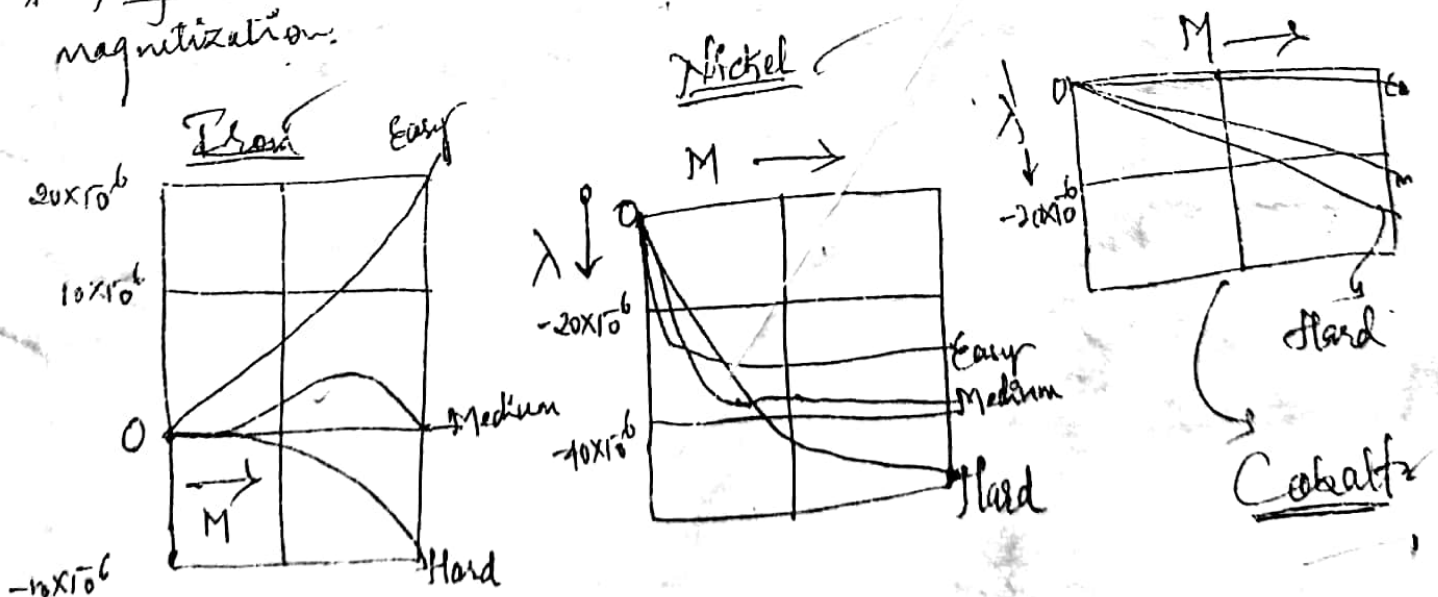 magnetization:
Iron
Easy
20×10⁻⁶
10×10⁻⁶
O
Medium
M
-10×10⁻⁶
Hard
Nickel
M
O
λ
-20×10⁻⁶
Easy
Medium
-40×10⁻⁶
Hard
M
O
λ
-20×10⁻⁶
m
Hard
Cobalt